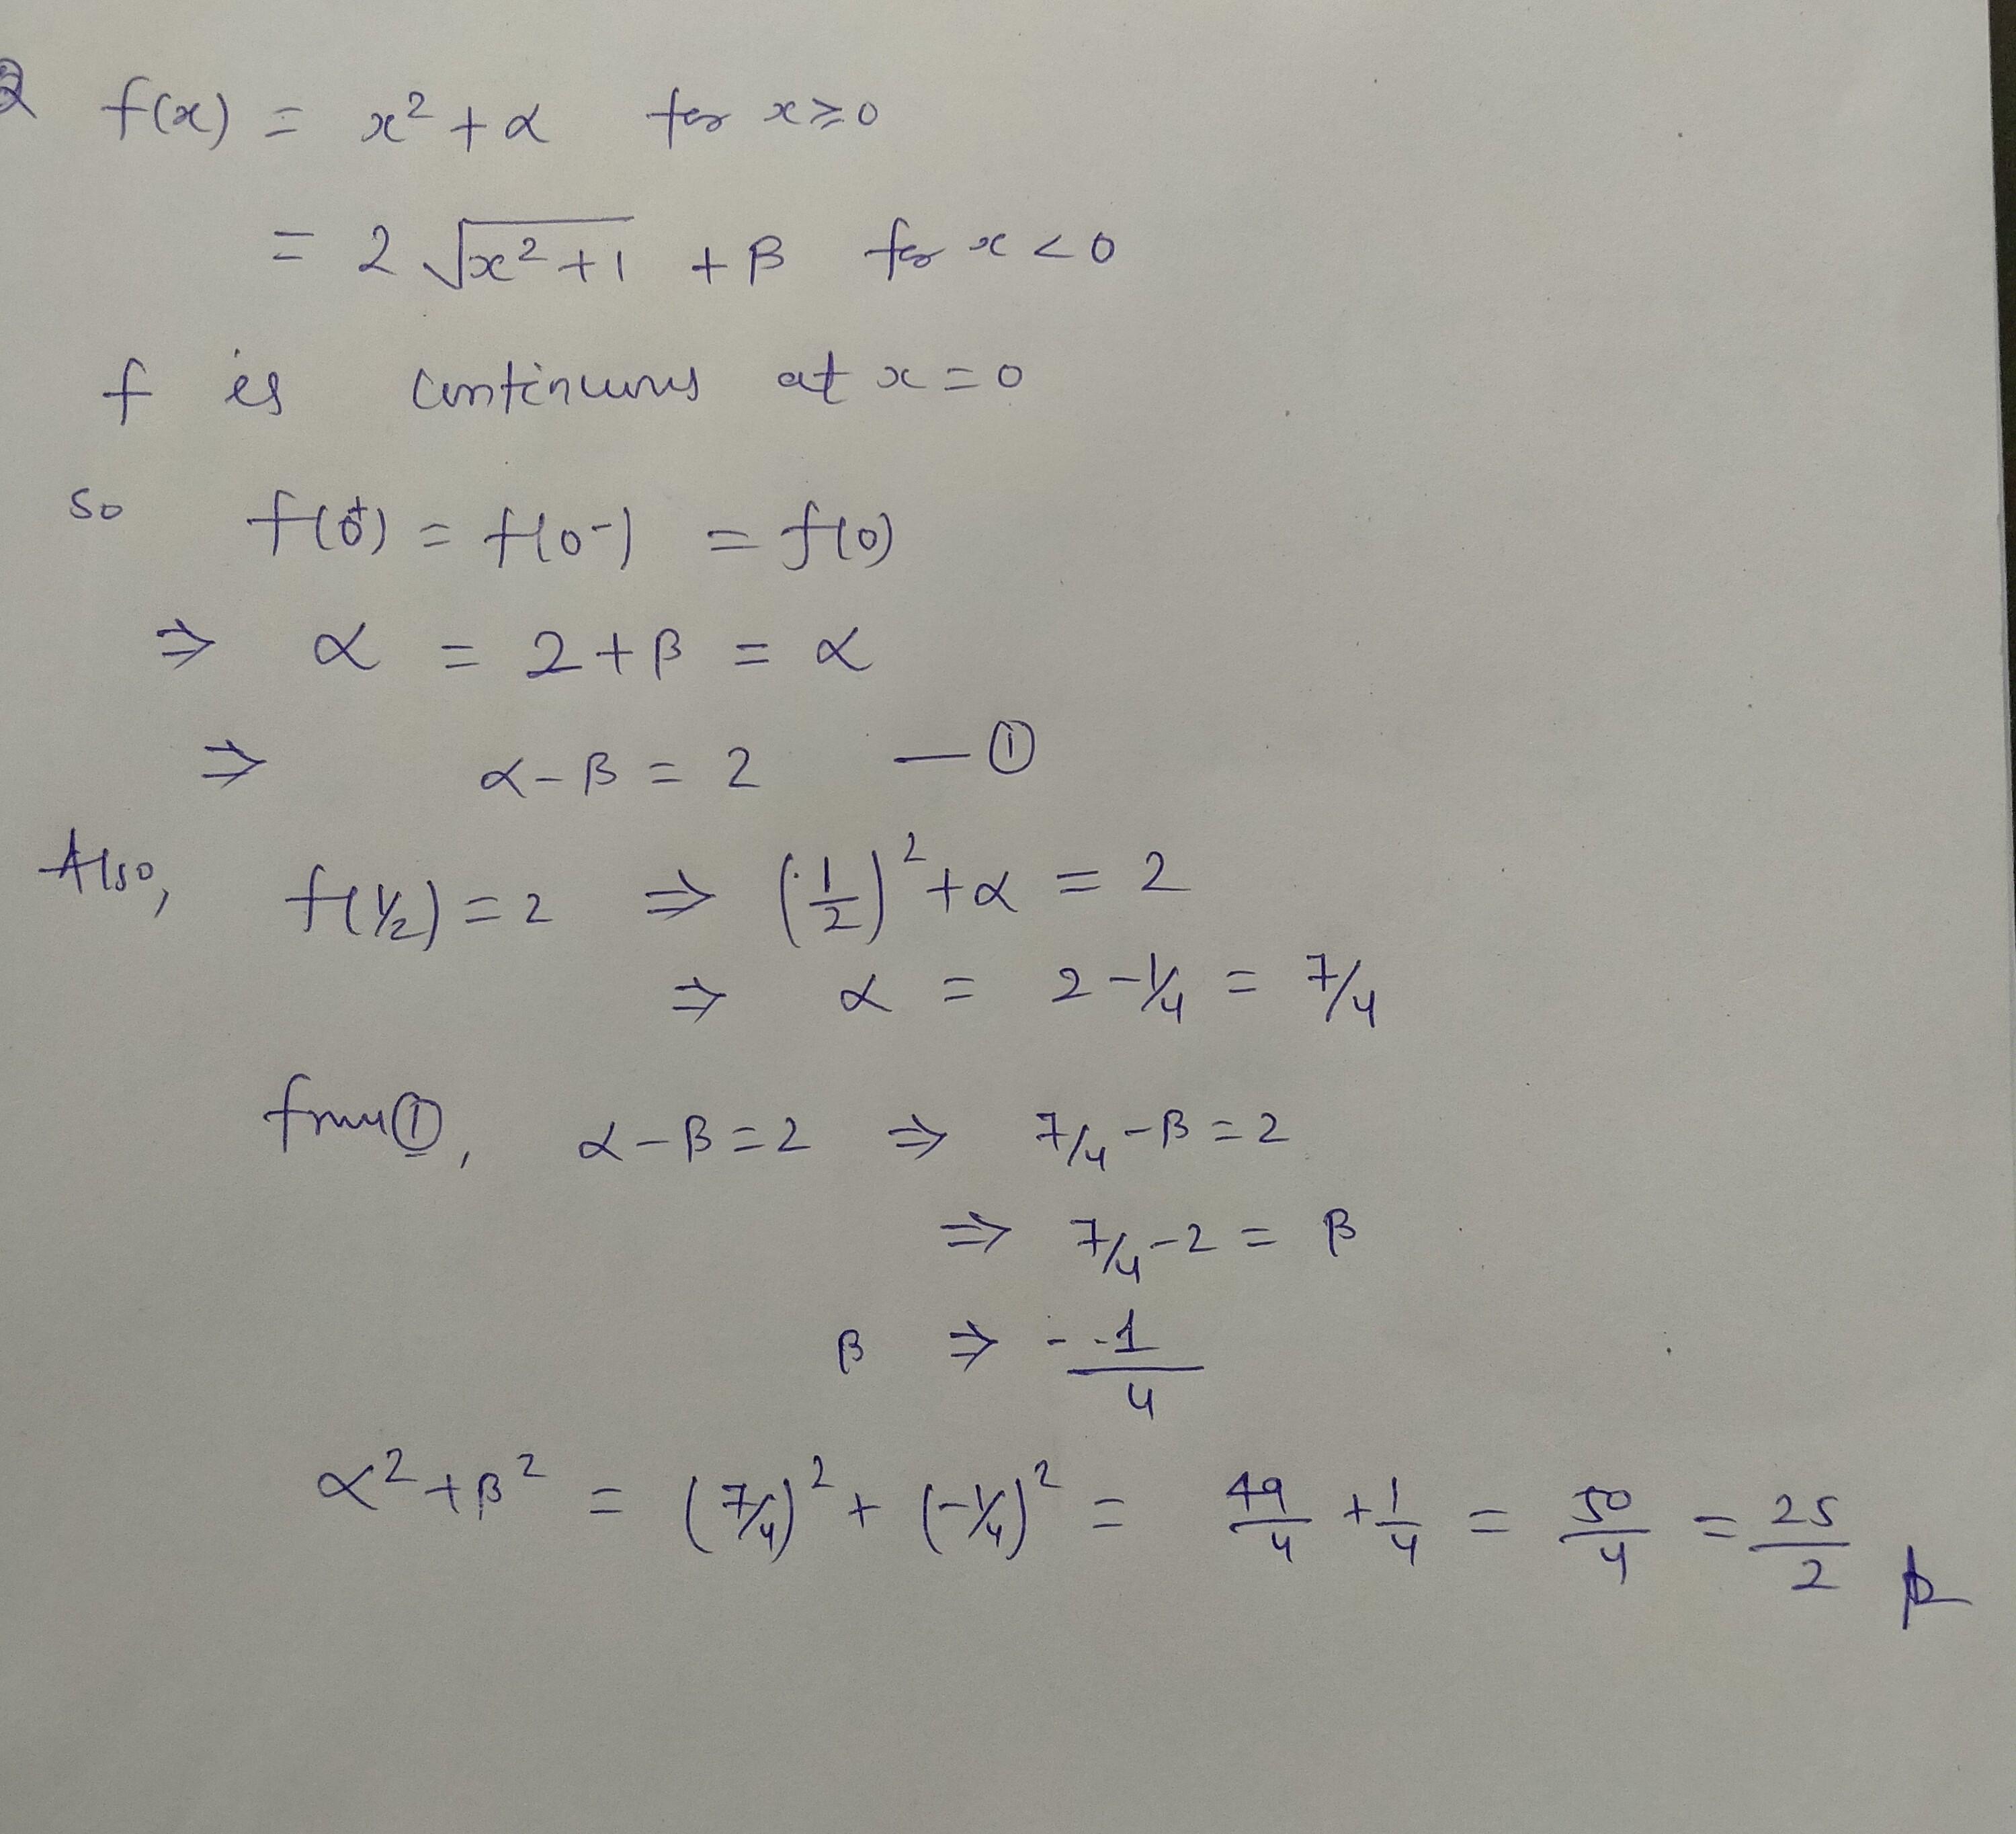 Q f(x) = x² + α for x ≥ 0
= 2 √(x² + 1) + β for x < 0
f is continuous at x = 0
so f(0⁺) = f(0⁻) = f(0)
⇒ α = 2 + β = α
⇒ α - β = 2 — ①
Also, f(1/2) = 2 ⇒ (1/2)² + α = 2
⇒ α = 2 - 1/4 = 7/4
from ①, α - β = 2 ⇒ 7/4 - β = 2
⇒ 7/4 - 2 = β
β ⇒ -1/4
α² + β² = (7/4)² + (-1/4)² = 49/4 + 1/4 = 50/4 = 25/2